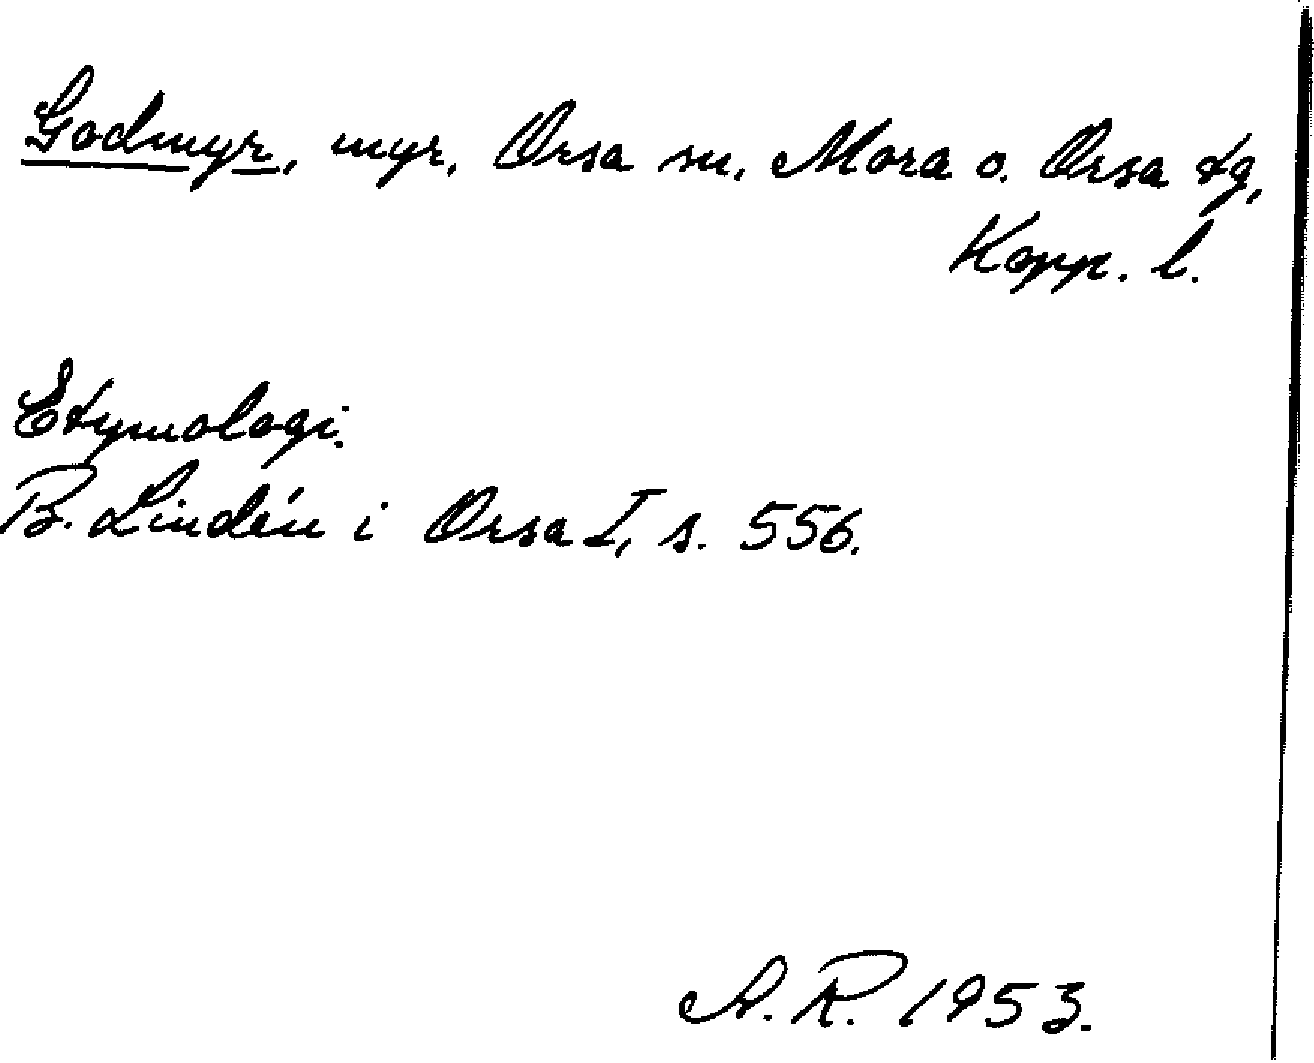 Godmyr, myr, Orsa sn, Mora o. Orsa tg,
Kopp. l.
Etymologi.
B. Lindén i Orsa I, s. 556.
A. R. 1953.